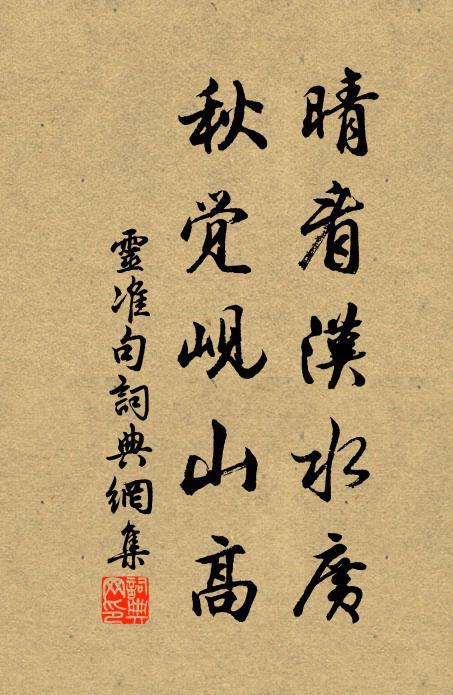 晴看漢水廣
秋覺峴山高
靈准句詞典網集
詞典網印